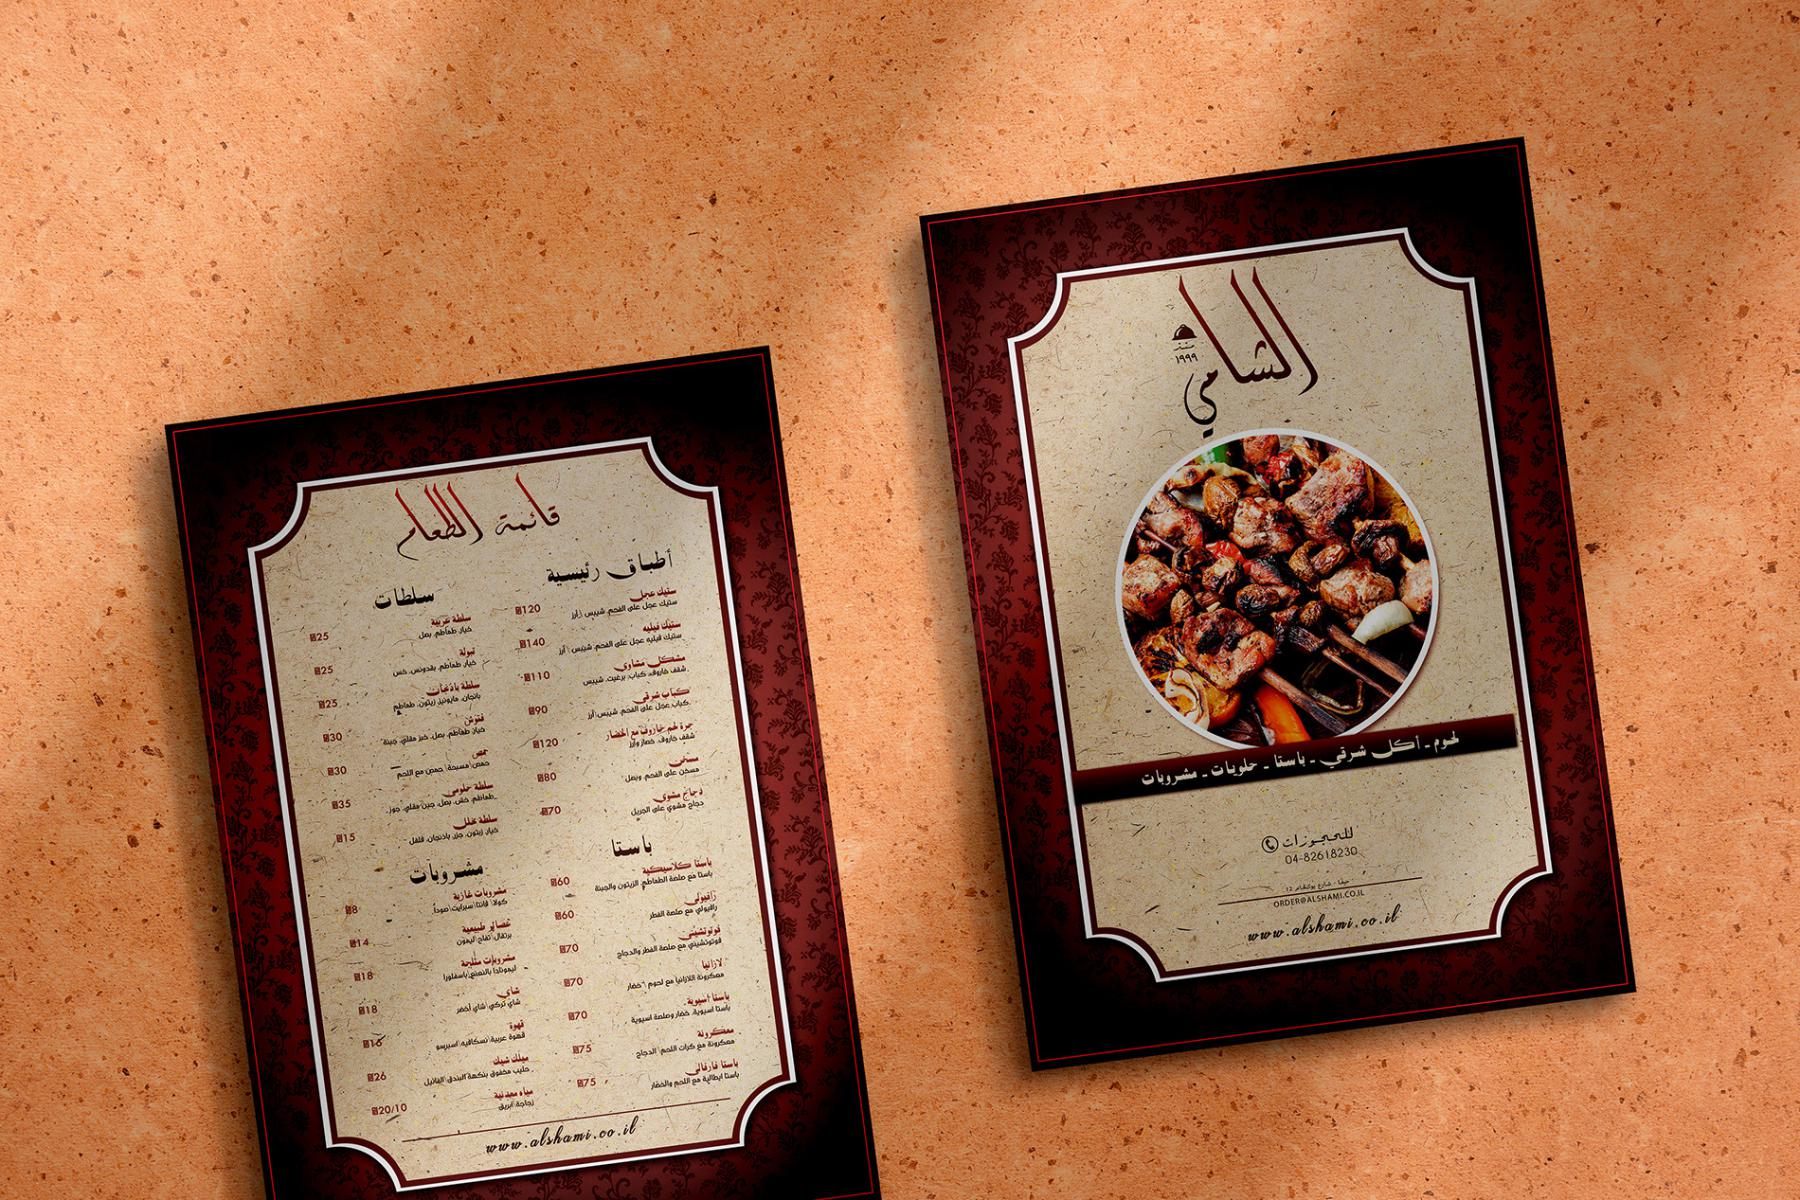 قائمة الطعام
أطباق رئيسية
ستيك عجل
ستيك عجل على الفحم، شيبس \أرز
120
ستيك فيليه
ستيك فيليه عجل على الفحم، شيبس \ أرز
140
مشكل مشاوي
شقف خاروف، كباب، برغيت، شيبس
110
كباب شرقي
كباب عجل على الفحم، شيبس\أرز
90
جرة لحم خاروف مع الخضار
شقف خاروف، خضار وأرز
120
مسخن
مسخن على الفحم، وبصل
80
دجاج مشوي
دجاج مشوي على الجريل
70
باستا
باستا كلاسيكية
باستا مع صلصة الطماطم، الزيتون والجبنة
60
رافيولي
رافيولي مع صلصة الفطر
60
فوتوتشيني
فوتوتشيني مع صلصة الفطر والدجاج
70
لازانيا
معكرونة اللازانيا مع لحوم \خضار
70
باستا اسيوية
باستا اسيوية، خضار وصلصة اسيوية
70
معكرونة
معكرونة مع كرات اللحم\ الدجاج
75
باستا فارفالي
باستا ايطالية مع اللحم والخضار
75
سلطات
سلطة عربية
خيار، طماطم، بصل
25
تبولة
خيار، طماطم، بقدونس، خس
25
سلطة باذنجان
بانجان، مايونيز، زيتون، طماطم
25
فتوش
خيار، طماطم، بصل، خبز مقلي، جبنة
30
حمص
حمص\ مسبحة\ حمص مع اللحم
30
سلطة حلومي
طماطم، خس، بصل، جبن مقلي، جوز
35
سلطة مخلل
خيار، زيتون، جزر، باذنجان، فلفل
15
مشروبات
مشروبات غازية
كولا\ فانتا\ سبرايت\ صودا
8
عصائر طبيعية
برتقال\ تفاح\ ليمون
14
مشروبات مثلجة
ليمونادا بالنعنع\ باسفلورا
18
شاي
شاي تركي\ شاي أخضر
18
قهوة
قهوة عربية\ نسكافيه\ اسبرسو
16
ميلك شيك
حليب مخفوق بنكهة البندق\ الفانيل
26
مياه معدنية
زجاجة\ ابريق
20/10
www.alshami.co.il
الشامي
منذ
١٩٩٩
لحوم - أكل شرقي - باستا - حلويات - مشروبات
للحجوزات
04-82618230
حيفا - شارع يوتنغام 12
ORDER@ALSHAMI.CO.IL
www.alshami.co.il